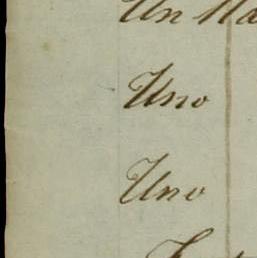 Un
Uno
Uno